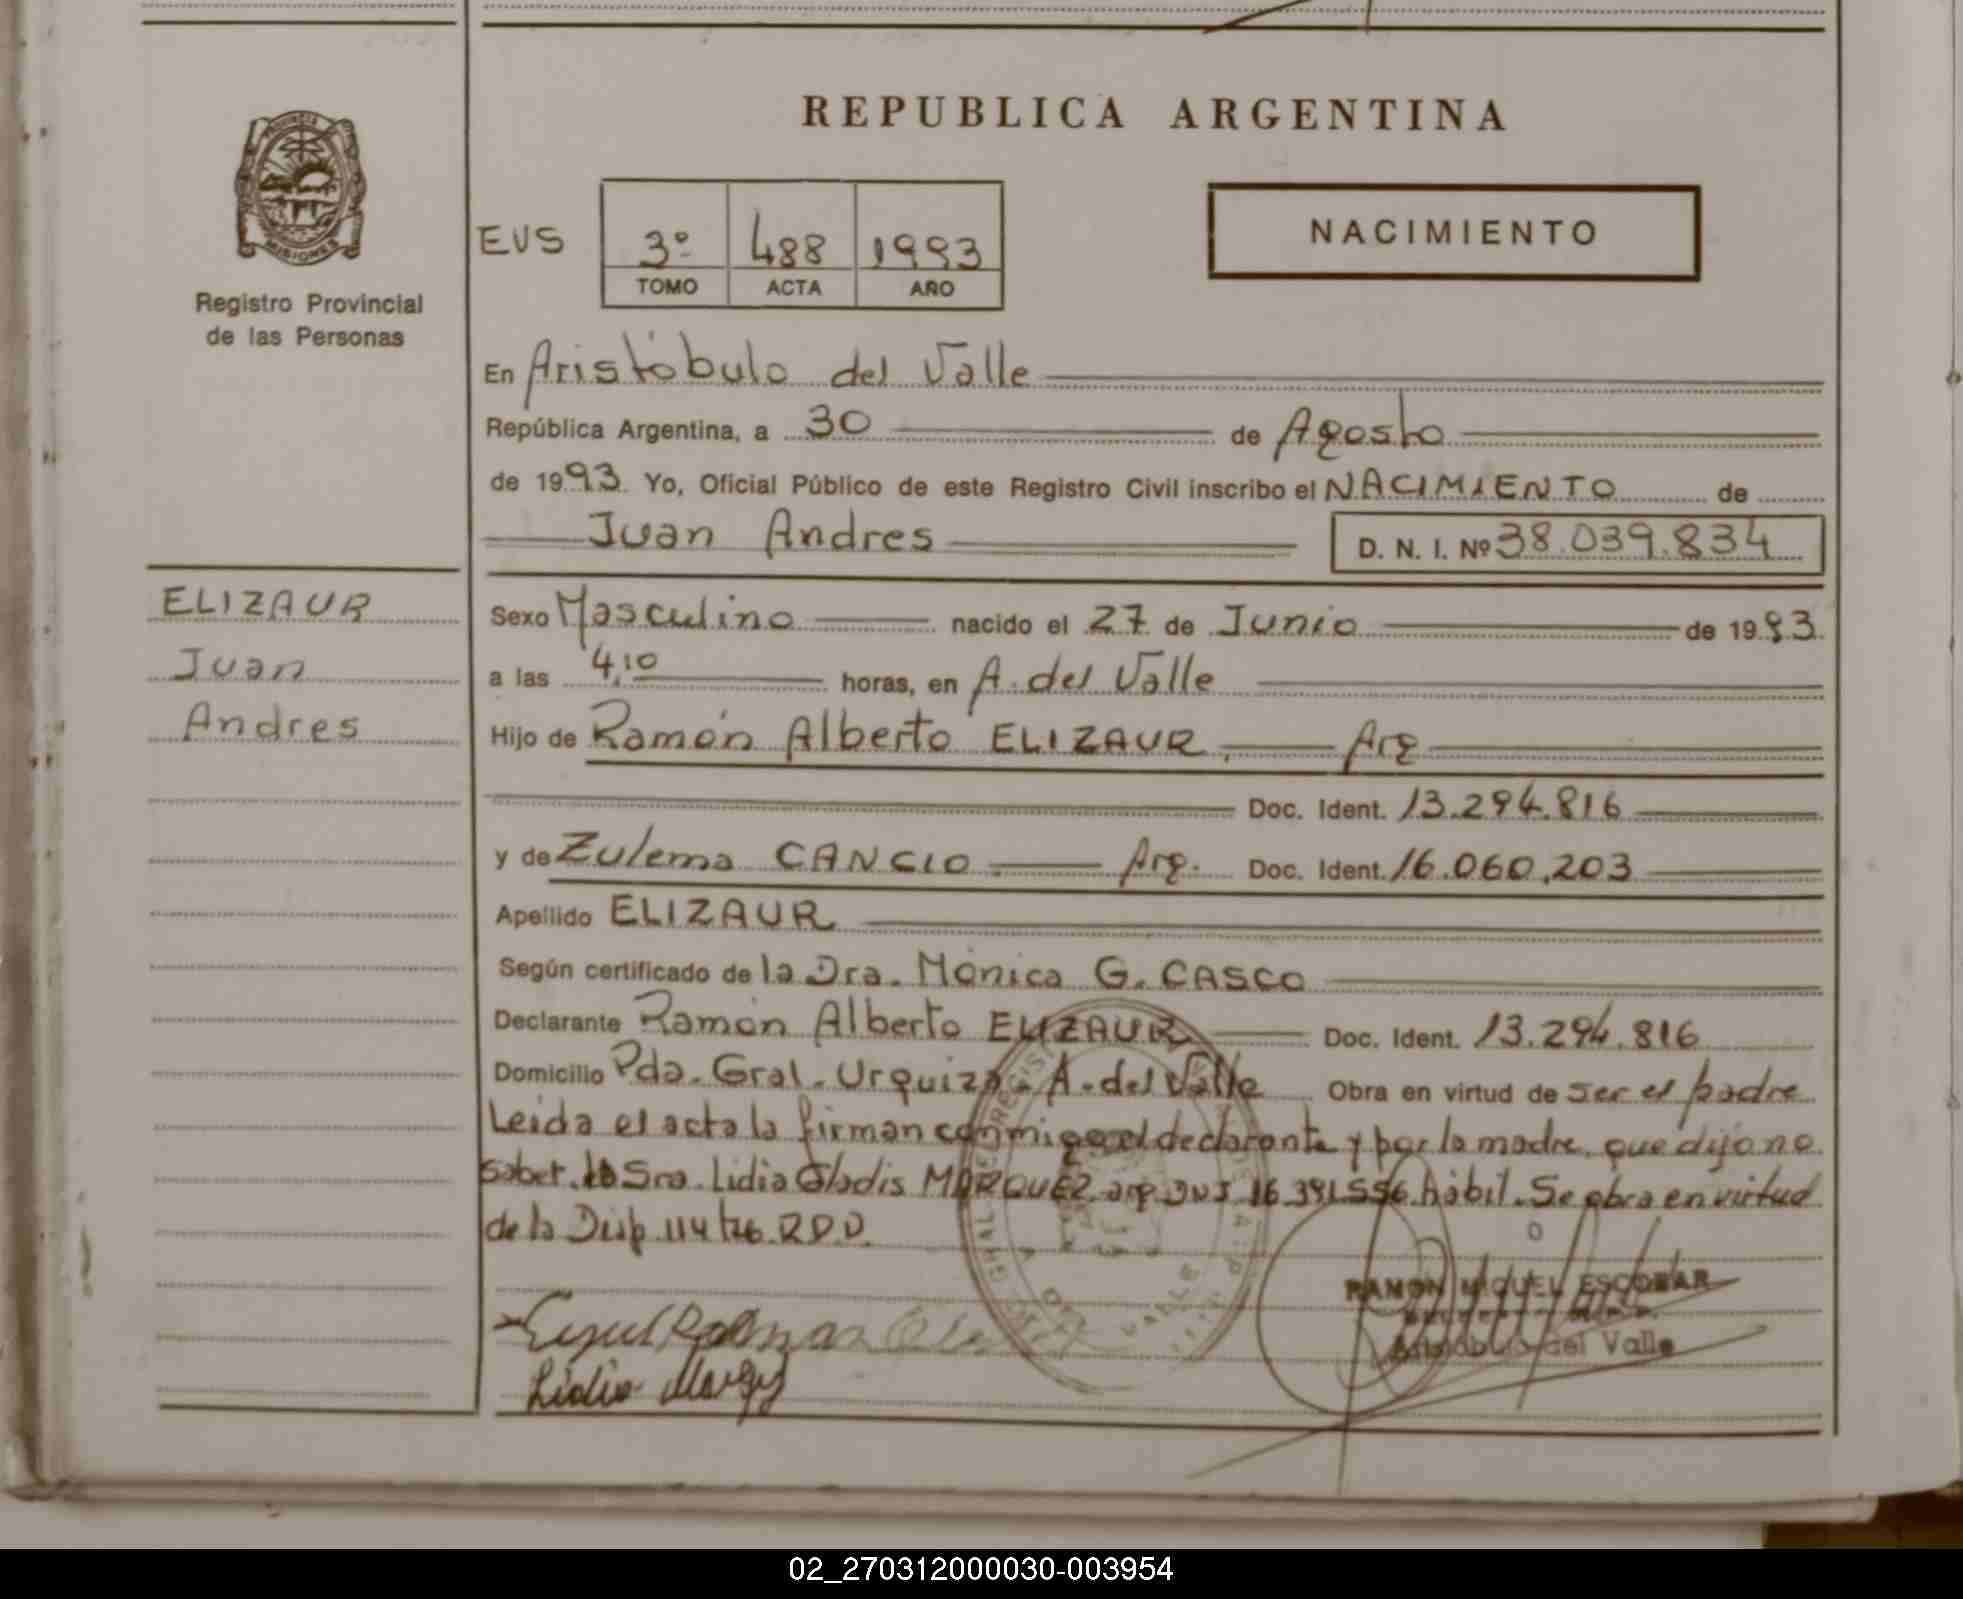 REPUBLICA ARGENTINA
PROVINCIA
MISIONES
Registro Provincial
de las Personas
EVS
3º 488 1993
TOMO ACTA AÑO
NACIMIENTO
En Aristóbulo del Valle
República Argentina, a 30 de Agosto
de 1993. Yo, Oficial Público de este Registro Civil inscribo el NACIMIENTO de
Juan Andres D. N. I. Nº 38.039.834
ELIZAUR
Juan
Andres
Sexo Masculino nacido el 27 de Junio de 1993.
a las 4,10 horas, en A. del Valle
Hijo de Ramón Alberto ELIZAUR, Arg
Doc. Ident. 13.294.816
y de Zulema CANCIO. Arg. Doc. Ident. 16.060.203
Apellido ELIZAUR
Según certificado de la Dra. Mónica G. CASCO
Declarante Ramón Alberto ELIZAUR Doc. Ident. 13.294.816
Domicilio Pda. Gral. Urquiza. A. del Valle Obra en virtud de ser el padre
Leida el acta la firman conmigo el declarante y por la madre, que dijo no
saber, la Sra. Lidia Gladis MARQUEZ arg. DNI 16.391.556 hábil. Se obra en virtud
de la Disp. 114/76. R.D.D.
RAMON MIGUEL ESCOBAR
Aristóbulo del Valle
Lidia
02_270312000030-003954